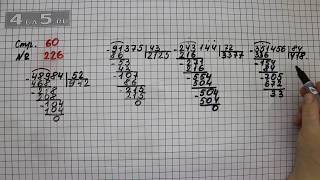 Стр. 60
№ 226
-48984 | 52
468 | 942
-218
208
-104
104
0
-91375 | 43
86 | 2125
-53
43
-107
86
-215
215
0
-243144 | 72
216 | 3377
-271
216
-554
504
-504
504
0
-351456 | 84
336 | 418
-154
84
-705
672
33